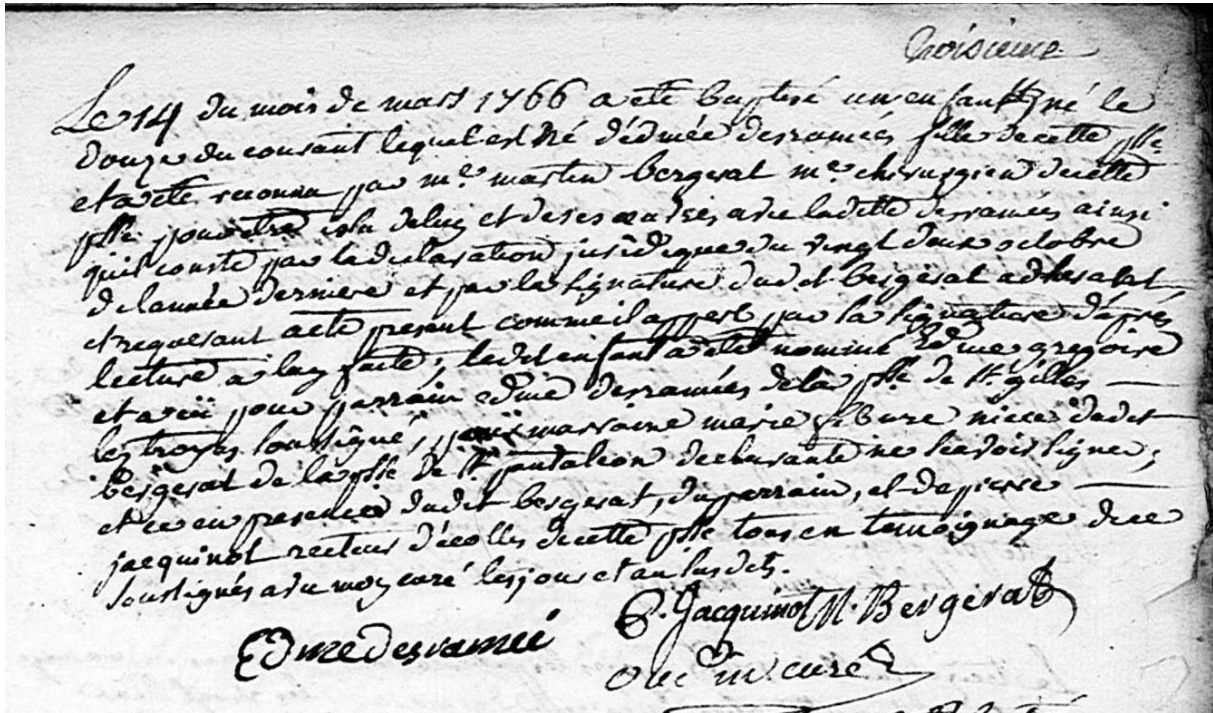 troisieme
Le 14 du mois de mars 1766 a eté baptisé un enfant né le
douze du courant lequel est né d'edmée desramées fille de cette psse
et a eté reconnu par me martin bergerat me chirurgien de cette
psse pour etre issu de luy et de ses œuvres avec ladette desramées ainsi
quil conste par la declaration juridique du vingt deux octobre
de lannée derniere et par la signature dudit bergerat adherant
et requerant acte present comme il appert par sa signature d'aprés
lecture a luy faite; ledit enfant a eté nommé Edme gregoire
et a eü pour parrain edme desramées de la psse de St. gilles
les troyes soussigné, pour marraine marie niece dudit
bergerat de la psse de St. pantaleon declarante ne scavoir signer;
et ce en presence dudit bergerat, du parrain, et de pierre
jacquinot recteur d'ecolles de cette psse tous en temoignage de ce
soussignés avec moy curé les jour et an susdits.
P. Jacquinot M. Bergerat
Edme Desramée
curé